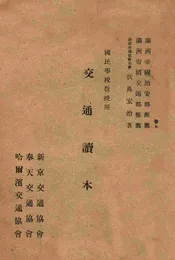 滿洲帝國治安部推薦
滿洲帝國交通部推薦
國民學校教授用
交通讀本
新京交通協會
奉天交通協會
哈爾濱交通協會